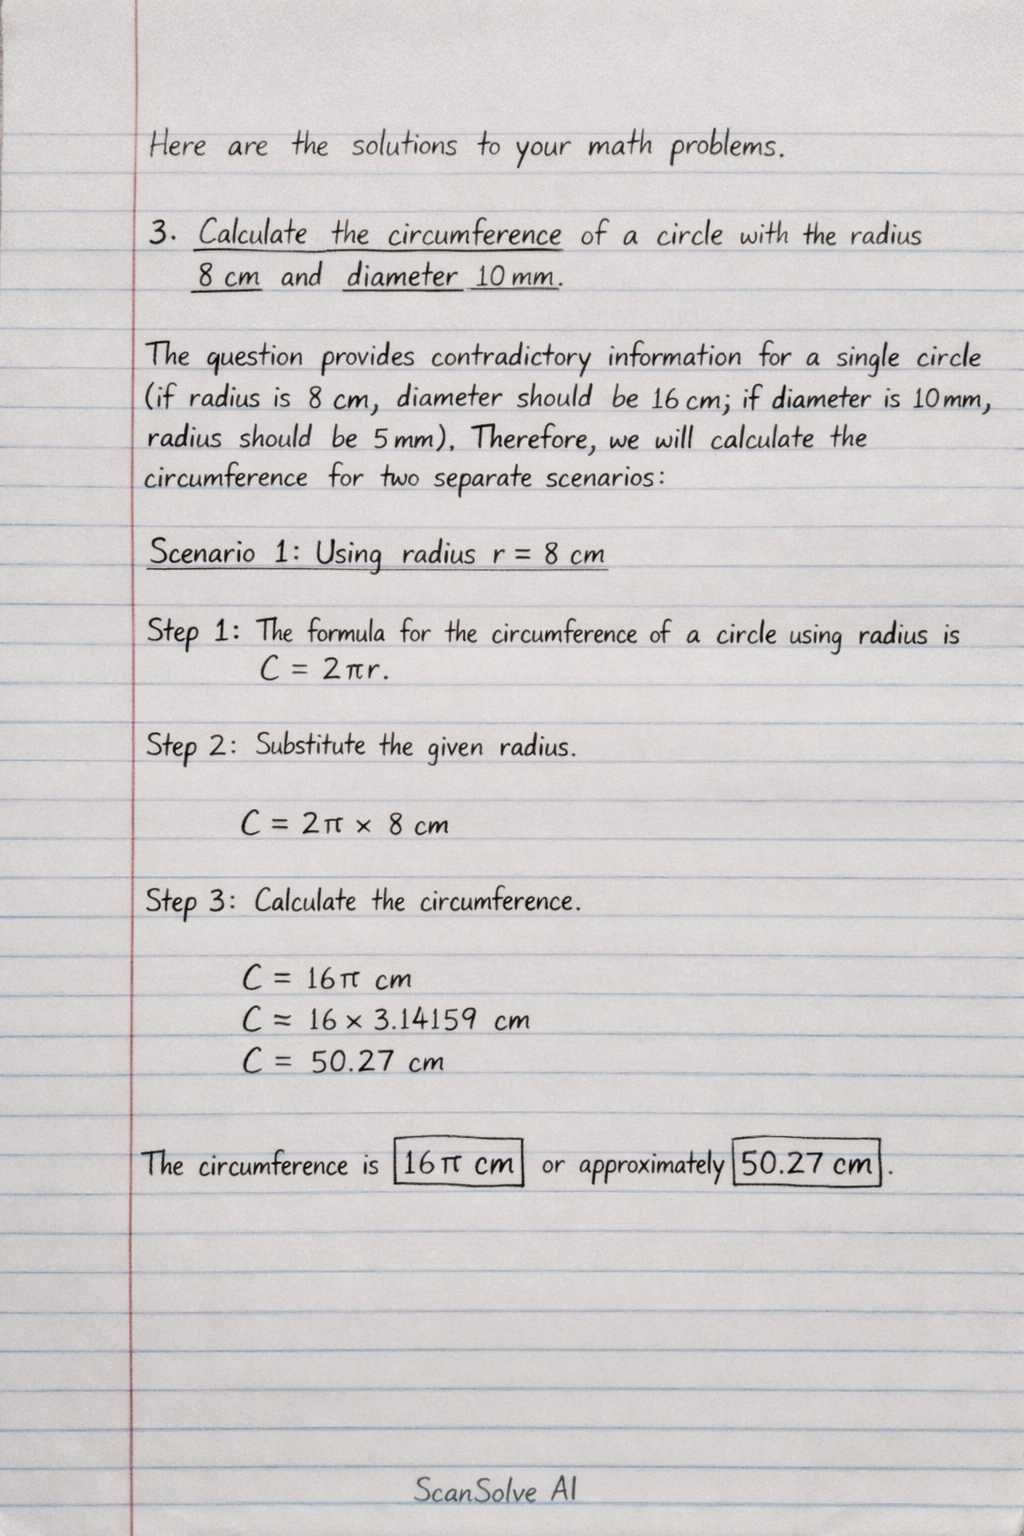 Here are the solutions to your math problems.
3. Calculate the circumference of a circle with the radius
8 cm and diameter 10 mm.
The question provides contradictory information for a single circle
(if radius is 8 cm, diameter should be 16 cm; if diameter is 10 mm,
radius should be 5 mm). Therefore, we will calculate the
circumference for two separate scenarios:
Scenario 1: Using radius r = 8 cm
Step 1: The formula for the circumference of a circle using radius is
C = 2πr.
Step 2: Substitute the given radius.
C = 2π × 8 cm
Step 3: Calculate the circumference.
C = 16π cm
C ≈ 16 × 3.14159 cm
C = 50.27 cm
The circumference is 16π cm or approximately 50.27 cm.
ScanSolve AI